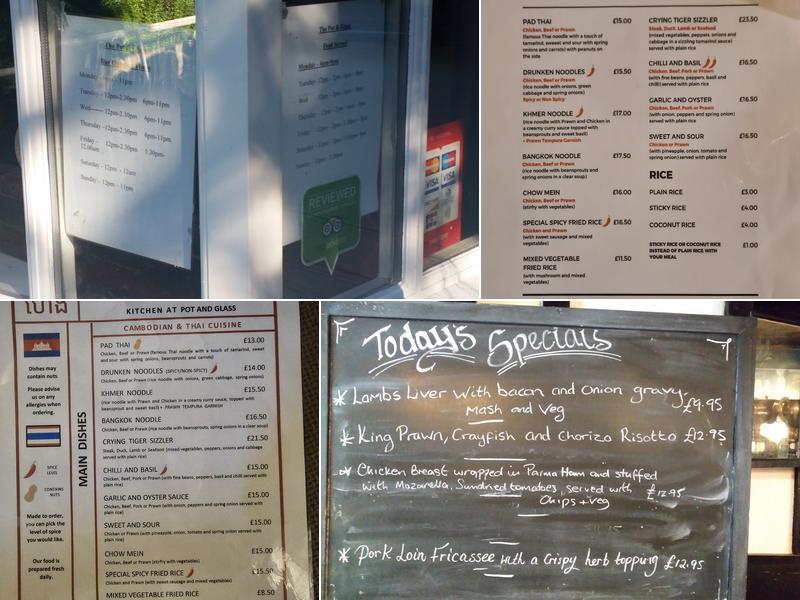 The Pot & Glass
Food Served
Monday
12pm-2.30pm 6pm-11pm
12pm-2.30pm 6pm-11pm
Thursday 12pm-2.30pm 6pm-11pm
Friday 12pm-2.30pm 5.30pm-
12.00am
Saturday 12pm - 12am
Sunday - 12pm - 11pm
REVIEWED
VISA VISA
PAD THAI £15.00
Chicken, Beef or Prawn
(famous Thai noodle with a touch of
tamarind, sweet and sour with spring
onions and carrots) with peanuts on
the side
DRUNKEN NOODLES £15.50
Chicken, Beef or Prawn
(rice noodle with onions, green
cabbage and spring onions)
Spicy or Non Spicy
KHMER NOODLE £17.00
(rice noodle with Prawn and Chicken in
a creamy curry sauce topped with
beansprouts and sweet basil)
+ Prawn Tempura Garnish
BANGKOK NOODLE £17.50
Chicken, Beef or Prawn
(rice noodle with beansprouts and
spring onions in a clear soup)
CHOW MEIN £16.00
Chicken, Beef or Prawn
(stirfry with vegetables)
SPECIAL SPICY FRIED RICE £16.50
Chicken and Prawn
(with sweet sausage and mixed
vegetables)
MIXED VEGETABLE £11.50
FRIED RICE
(with mushroom and mixed
vegetables)
CRYING TIGER SIZZLER £23.50
Steak, Duck, Lamb or Seafood
(mixed vegetables, peppers, onions and
cabbage in a sizzling tamarind sauce)
served with plain rice
CHILLI AND BASIL £16.50
Chicken, Beef, Pork or Prawn
(with fine beans, peppers, basil and
chilli) served with plain rice
GARLIC AND OYSTER £16.50
Chicken, Beef, Pork or Prawn
(with onion, peppers and spring onion)
served with plain rice
SWEET AND SOUR £16.50
Chicken or Prawn
(with pineapple, onion, tomato and
spring onion) served with plain rice
RICE
PLAIN RICE £3.00
STICKY RICE £4.00
COCONUT RICE £4.00
STICKY RICE OR COCONUT RICE £1.00
INSTEAD OF PLAIN RICE WITH
YOUR MEAL
KITCHEN AT POT AND GLASS
CAMBODIAN & THAI CUISINE
Dishes may
contain nuts.
Please advise
us on
any allergies
when
ordering.
SPICE
LEVEL
CONTAINS
NUTS
Made to order,
you can pick
the level of
spice you
would like.
Our food is
prepared fresh
daily.
MAIN DISHES
PAD THAI £13.00
Chicken, Beef or Prawn (famous Thai noodle with a touch of tamarind, sweet
and sour with spring onions, beansprouts and carrots)
DRUNKEN NOODLES (SPICY/NON-SPICY) £14.00
Chicken, Beef or Prawn (rice noodle with onions, green cabbage, spring onions)
KHMER NOODLE £15.50
(rice noodle with Prawn and Chicken in a creamy curry sauce, topped with
beansprout and sweet basil) + PRAWN TEMPURA GARNISH
BANGKOK NOODLE £16.50
Chicken, Beef or Prawn (rice noodle with beansprouts, spring onions in a clear soup)
CRYING TIGER SIZZLER £21.50
Steak, Duck, Lamb or Seafood (mixed vegetables, peppers, onions and cabbage)
served with plain rice
CHILLI AND BASIL £15.00
Chicken, Beef, Pork or Prawn (with fine beans, peppers, basil and chilli) served with
plain rice
GARLIC AND OYSTER SAUCE £15.00
Chicken, Beef, Pork or Prawn (with onion, peppers and spring onion served with
plain rice)
SWEET AND SOUR £15.00
Chicken or Prawn (with pineapple, onion, tomato, spring onion served with plain
rice)
CHOW MEIN £15.00
Chicken, Beef or Prawn (stirfry with vegetables)
SPECIAL SPICY FRIED RICE £15.50
Chicken and Prawn (with sweet sausage and mixed vegetables)
MIXED VEGETABLE FRIED RICE £8.50
Today's Specials
* Lambs Liver with bacon and Onion gravy
Mash and Veg £9.95
* King Prawn, Crayfish and Chorizo Risotto £12.95
* Chicken Breast wrapped in Parma Ham and stuffed
with Mozarella, Sundried tomatoes, served with £12.95
Chips + Veg
* Pork Loin Fricassee with a Crispy herb topping £12.95